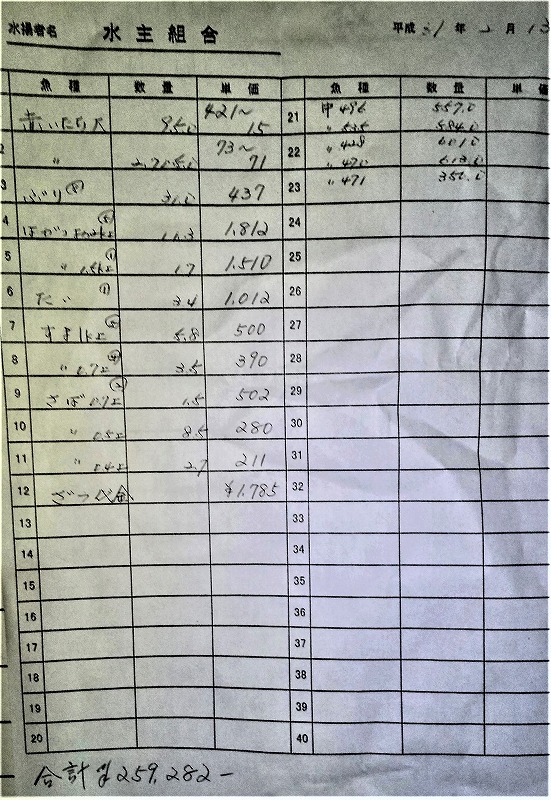 水揚者名 水主組合 平成 31 年 2 月 13
魚種 数量 単価 魚種 数量 単
421〜
95.0 15 21 中 496 557.0
2 〃 73〜 〃 525 584.0
2,705.0 71 22 〃 428 601.0
3 ぶり⑧ 31.0 437 〃 470 613.0
23 〃 471 350.0
4 1.812 24
5 〃 1.5kg ① 1.7 1.510 25
6 たい ① 3.4 1.012 26
7 すま1kg 5.8 500 27
8 〃 0.7kg 3.5 390 28
9 さば 1.5 502 29
10 〃 0.5kg 8.5 280 30
11 〃 0.4kg 2.7 211 31
12 ざっ ¥1.785 32
13 33
14 34
15 35
16 36
17 37
18 38
19 39
20 40
合計 ¥259,282−